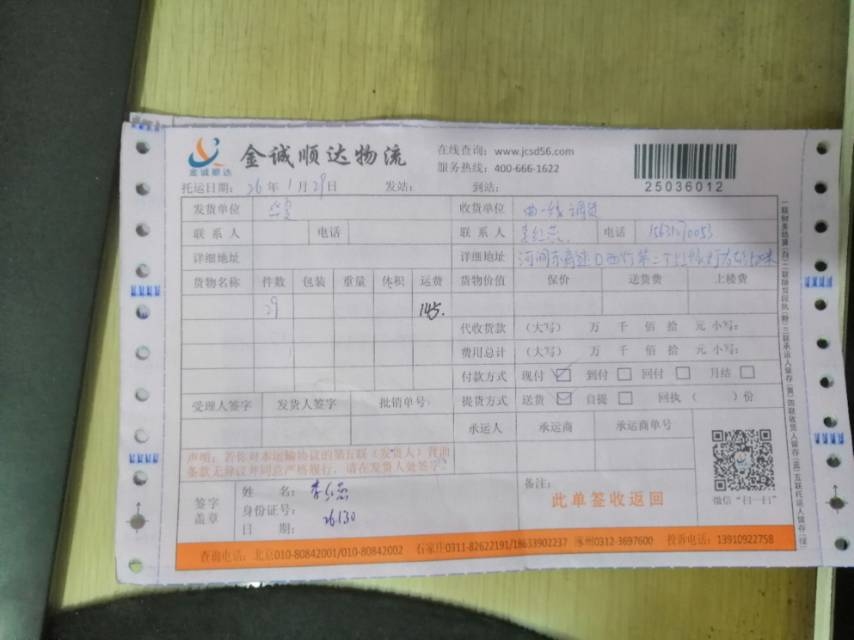 金诚顺达
金诚顺达物流
在线查询：www.jcsd56.com
服务热线：400-666-1622
25036012
托运日期：26年1月29日 发站： 到站：
发货单位 收货单位 曲一线
联系人 电话 联系人 电话
详细地址 详细地址
货物名称 件数 包装 重量 体积 运费 货物价值 保价 送货费 上楼费
29 145.
代收货款 （大写） 万 千 佰 拾 元 小写：
费用总计 （大写） 万 千 佰 拾 元 小写：
付款方式 现付 到付 回付 月结
受理人签字 发货人签字 批销单号 提货方式 送货 自提 回执（ ）份
承运人 承运商 承运商单号
声明：若你对本运输协议的第五联（发货人）背面
条款无异议并同意严格履行，请在发货人处签字
签字
盖章
姓 名：
身份证号：
日 期： 26.1.30
备注：
此单签收返回
微信“扫一扫”
查询电话：北京010-80842001/010-80842002 石家庄0311-82622191/18633902237 涿州0312-3697600 投诉电话：13910922758